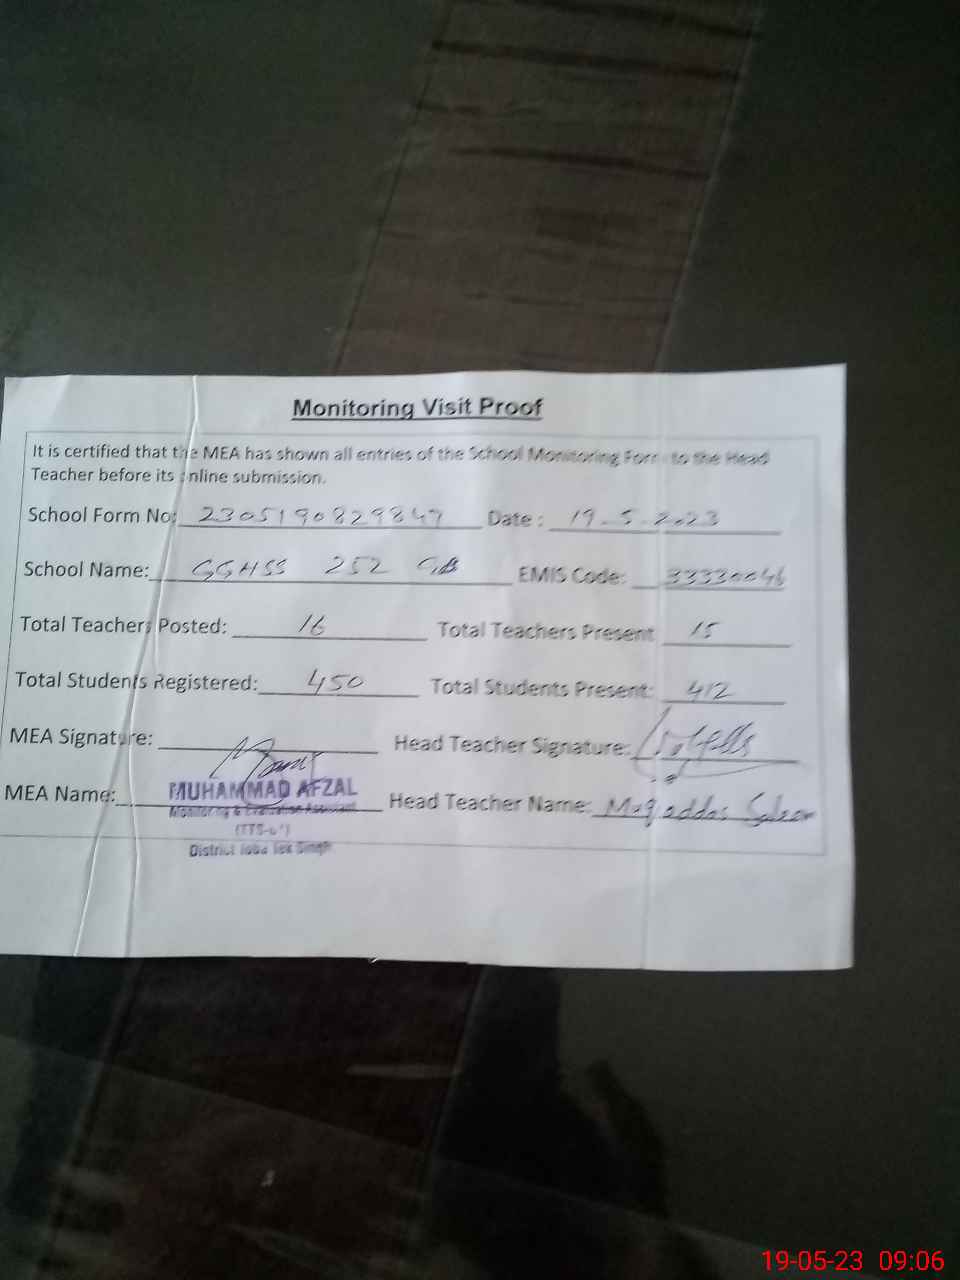 Monitoring Visit Proof
It is certified that the MEA has shown all entries of the School Monitoring Form to the Head
Teacher before its online submission.
School Form No: 2305190829847 Date : 19.5.2023
School Name: GGHSS 252 GB EMIS Code: 33330046
Total Teachers Posted: 16 Total Teachers Present 15
Total Students Registered: 450 Total Students Present: 412
MEA Signature: Head Teacher Signature:
MEA Name: MUHAMMAD AFZAL Head Teacher Name: Muqaddas Saleem
Monitoring & Evaluation Assistant
District Toba Tek Singh
19-05-23 09:06